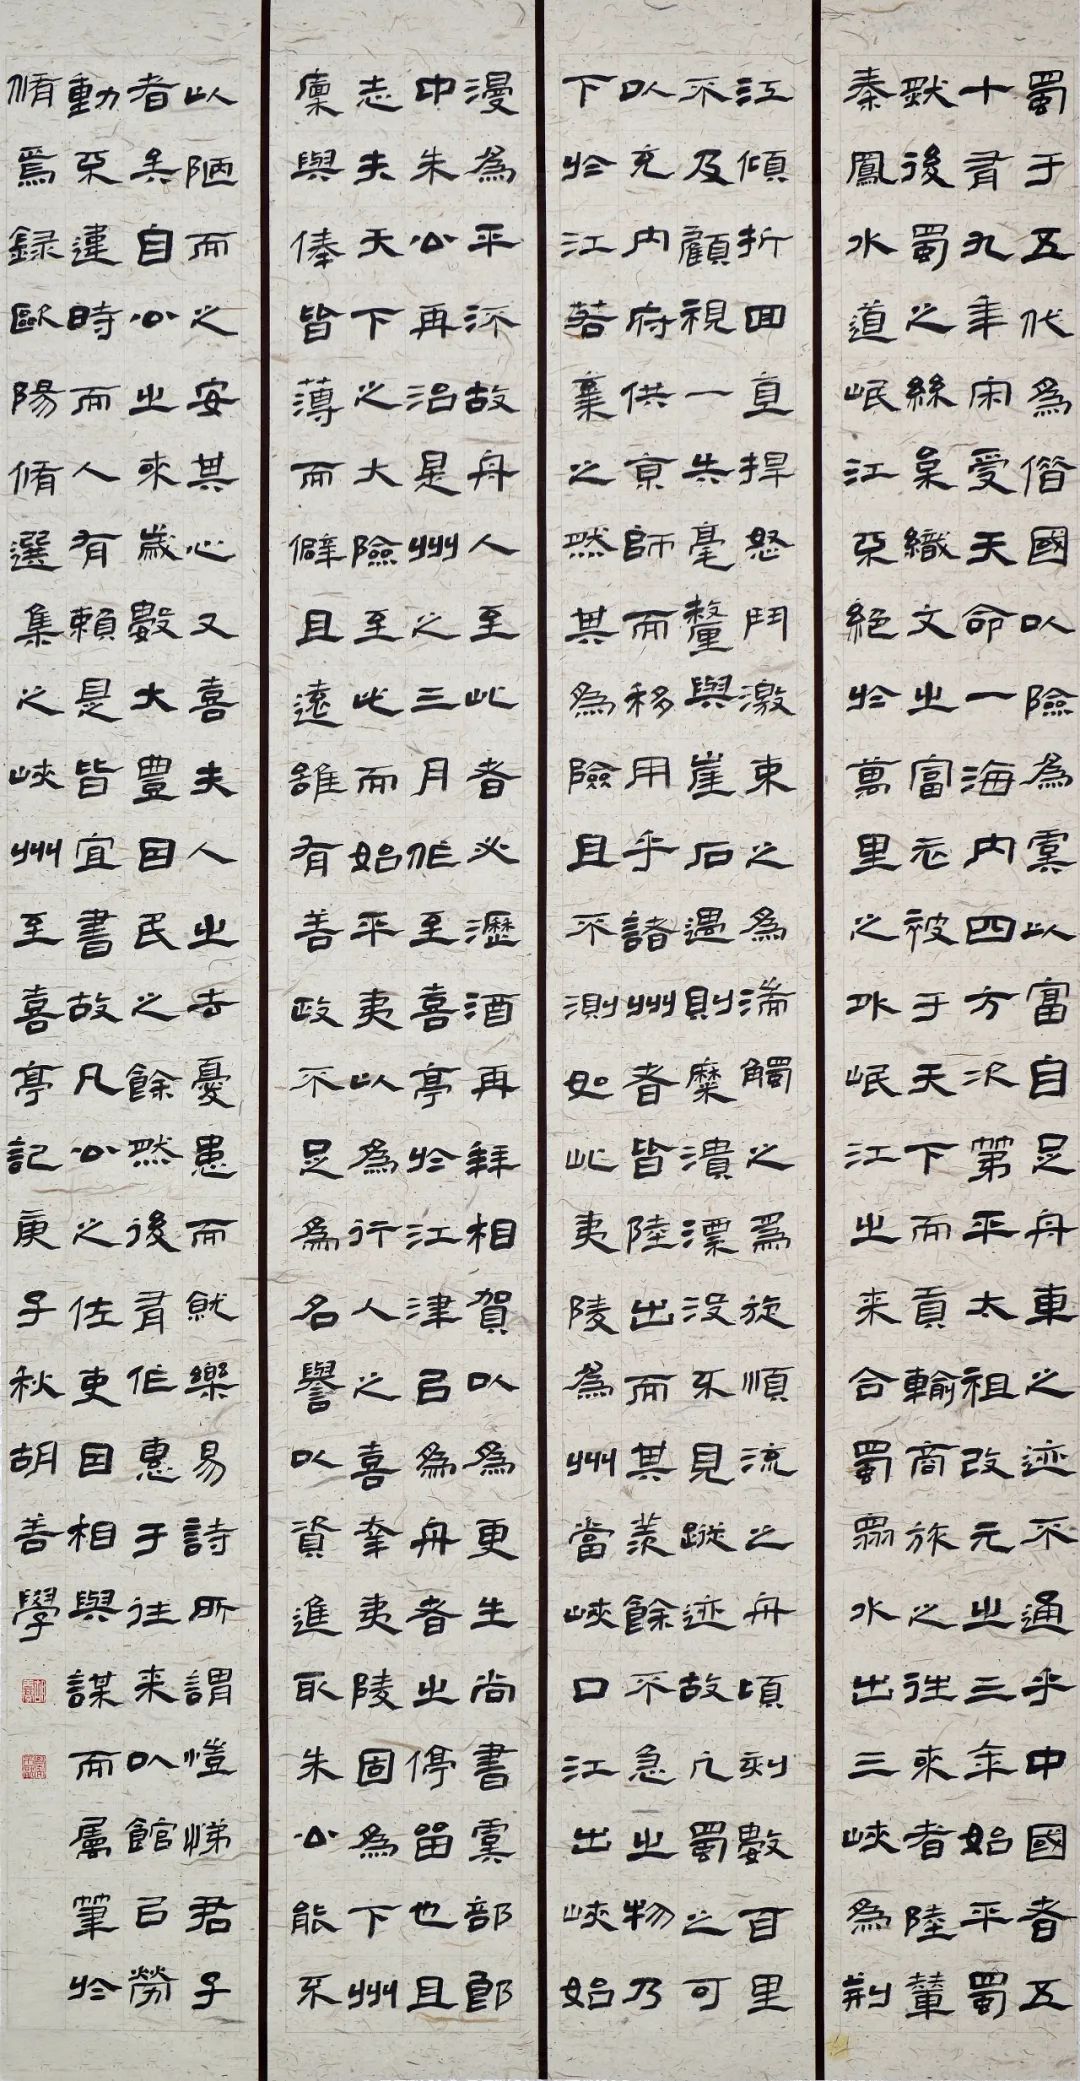 蜀于五代為僭國以險為虞以富自足舟車之迹不通乎中國者五
十有九年宋受天命一海內四方次第平太祖改元之三年始平蜀
然後蜀之絲枲織文之富衣被于天下而貢輸商旅之往來者陸輦
秦鳳水道岷江不絕於萬里之外岷江之來合蜀眾水出三峽為荊
江傾折回直捍怒鬥激束之為湍觸之為旋順流之舟頃刻數百里
不及顧視一失毫釐與崖石遇則糜潰漂沒不見蹤迹故凡蜀之可
以充內府供京師而移用乎諸州者皆陸出而其羨餘不急之物乃
下於江若棄之然其為險且不測如此夷陵為州當峽口江出峽始
漫為平流故舟人至此者必瀝酒再拜相賀以為更生尚書虞部郎
中朱公再治是州之三月作至喜亭於江津以為舟者之停留也且
志夫天下之大險至此而始平夷以為行人之喜幸夷陵固為下州
廩與俸皆薄而僻且遠雖有善政不足為名譽以資進取朱公能不
以陋而之安其心又喜夫人之去憂患而就樂易詩所謂愷悌君子
者矣自公之來歲數大豐因民之餘然後有作惠于往來以館以勞
動不違時而人有賴是皆宜書故凡公之佐吏因相與謀而屬筆於
脩焉錄歐陽脩選集之峽州至喜亭記庚子秋胡善學